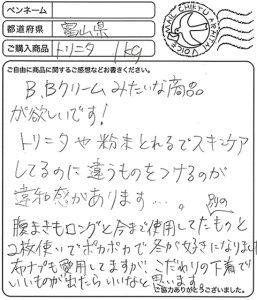 ペンネーム
都道府県 富山県
ご購入商品 トリニタ 1kg
MADE CHIETU ARAITAI VOICE
ご自由に商品に関するご感想などお書きください。
B.Bクリームみたいな商品
が欲しいです!
トリニタや粉末とれるでスキンケア
してるのに違うものをつけるのが
違和感があります…。
別の
腹まきもロングと今まで使用してたものと
2枚使いでポカポカで冬が好きになりました
布ナプも愛用してますが、こだわりの下着で
いいものが出たらいいなと思います
ご協力ありがとうございました。